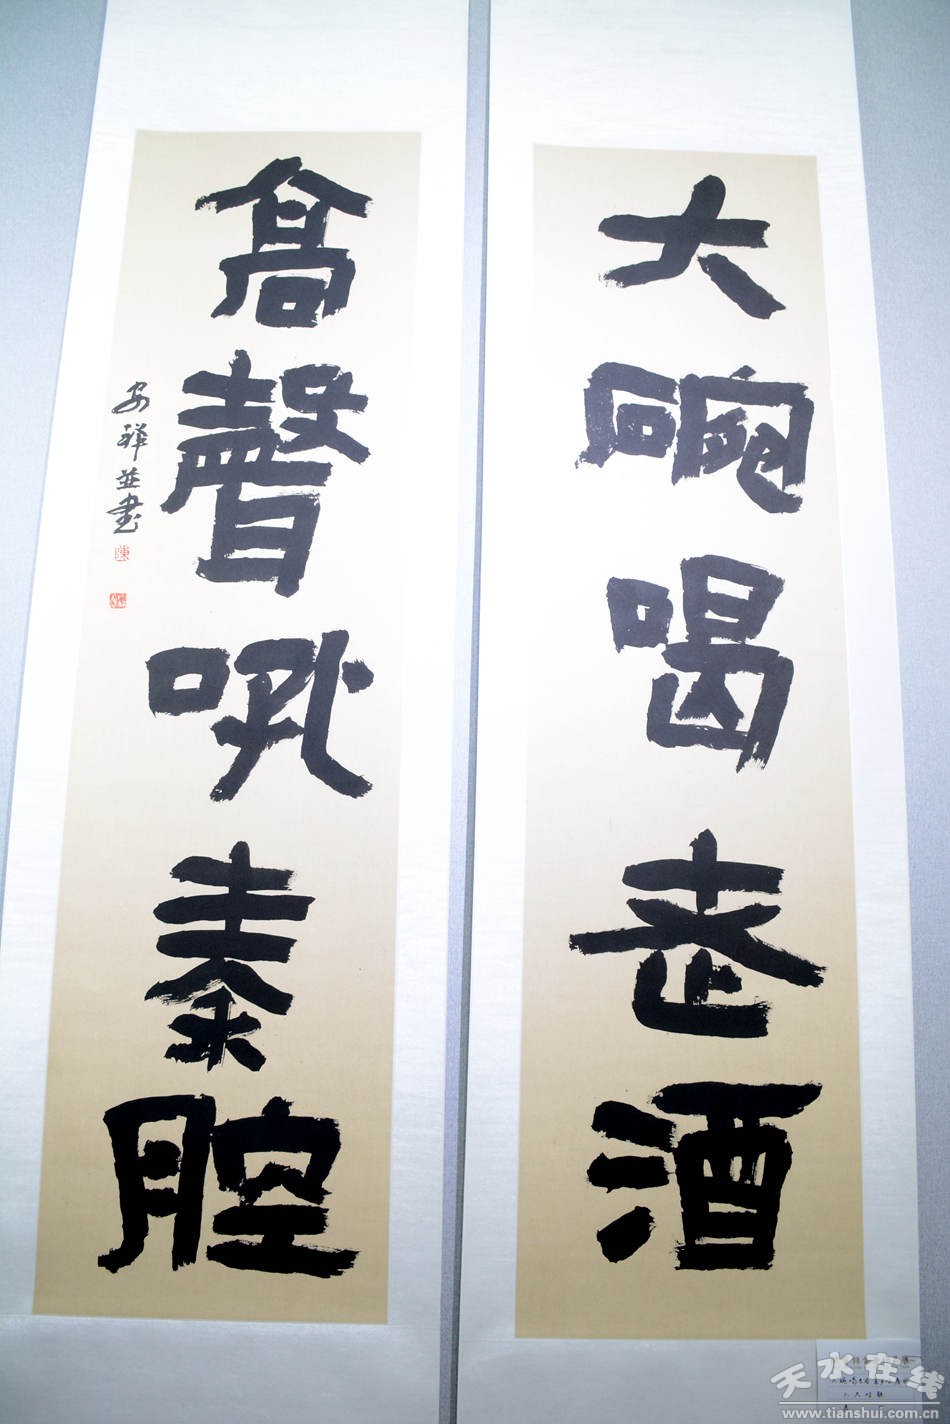 大碗喝老酒
高聲吼秦腔
安祥並書
天水在线
www.tianshui.com.cn